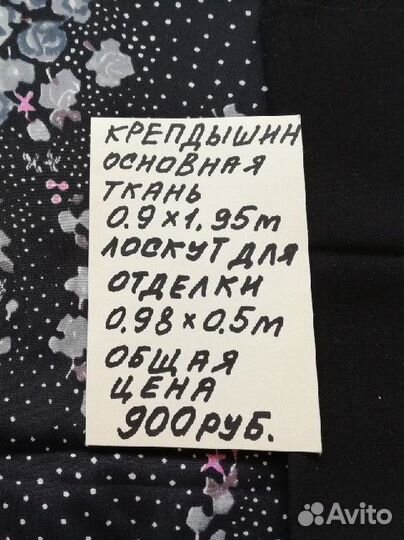 КРЕПДЫШИН
ОСНОВНАЯ
ТКАНЬ
0.9×1,95м
ЛОСКУТ ДЛЯ
ОТДЕЛКИ
0.98×0.5м
ОБЩАЯ
ЦЕНА
900РУБ.
Avito